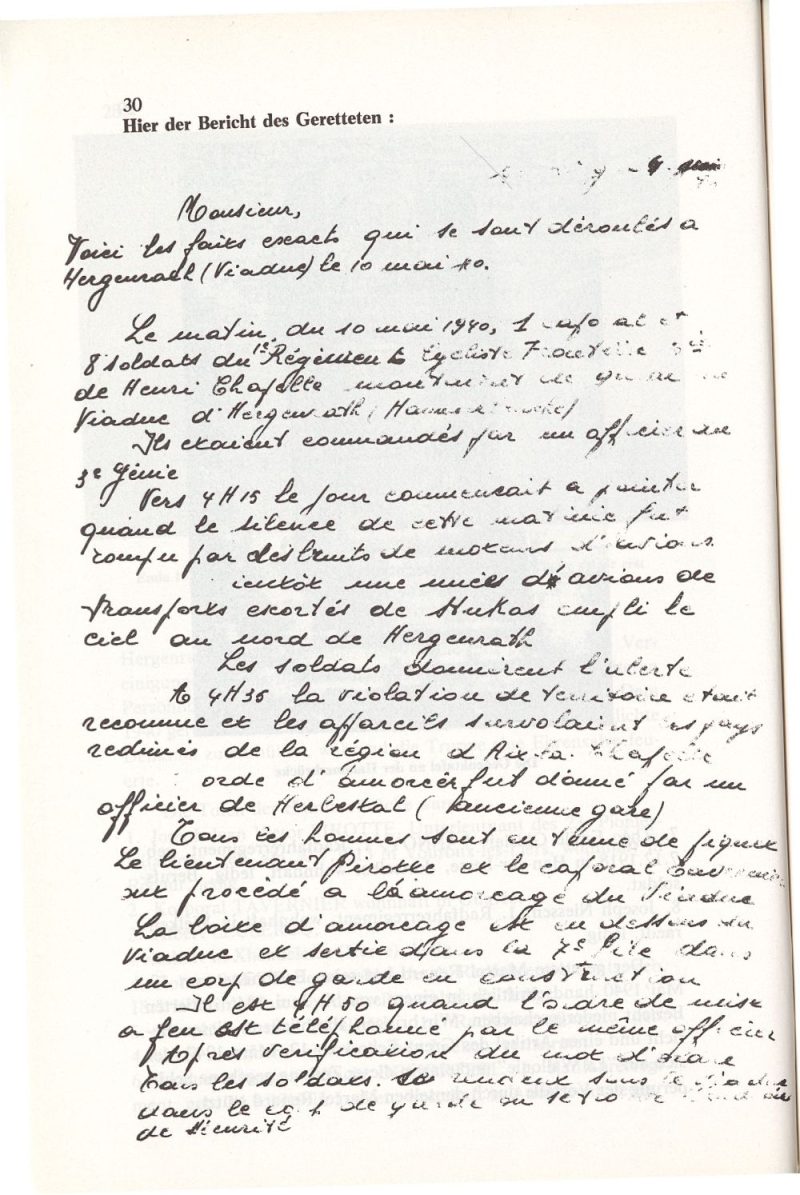 30
Hier der Bericht des Geretteten :
Monsieur,
Voici les faits exacts qui se sont déroulés a
Hergenrath (Viaduc) le 10 mai 40.
Le matin, du 10 mai 1940, 1
8 soldats du 1er Régiment Cycliste
de Henri Chapelle de
Viaduc d'Hergenrath (
Ils étaient commandés par un officier du
3e Génie
Vers 4H15 le jour commencait a pointer
quand le silence de cette matinée fut
rompu par des bruits de moteurs d'avions
une nuées d'avions de
transports escortés de Stukas empli le
ciel au nord de Hergenrath
Les soldats donnèrent l'alerte
A 4H35 la violation de territoire était
reconnue et les appareils survolaient les pays
redimés de la région d'Aix-la-Chapelle
d'amorcer fut donné par un
officier de Herbestal (l'ancienne gare)
Tous les hommes sont en tenue de piquet
Le lieutenant Pirotte et le caporal
procédé a l'amorcage du Viaduc
La boite d'amorcage est en dessous du
Viaduc et sertie dans la 7e pile dans
un corp de garde en construction
Il est 4H50 quand l'ordre de mise
a feu est téléphonné par le même officier
Apres verification du mot d'ordre
tous les soldats. sous le
dans le de garde
de sécurité